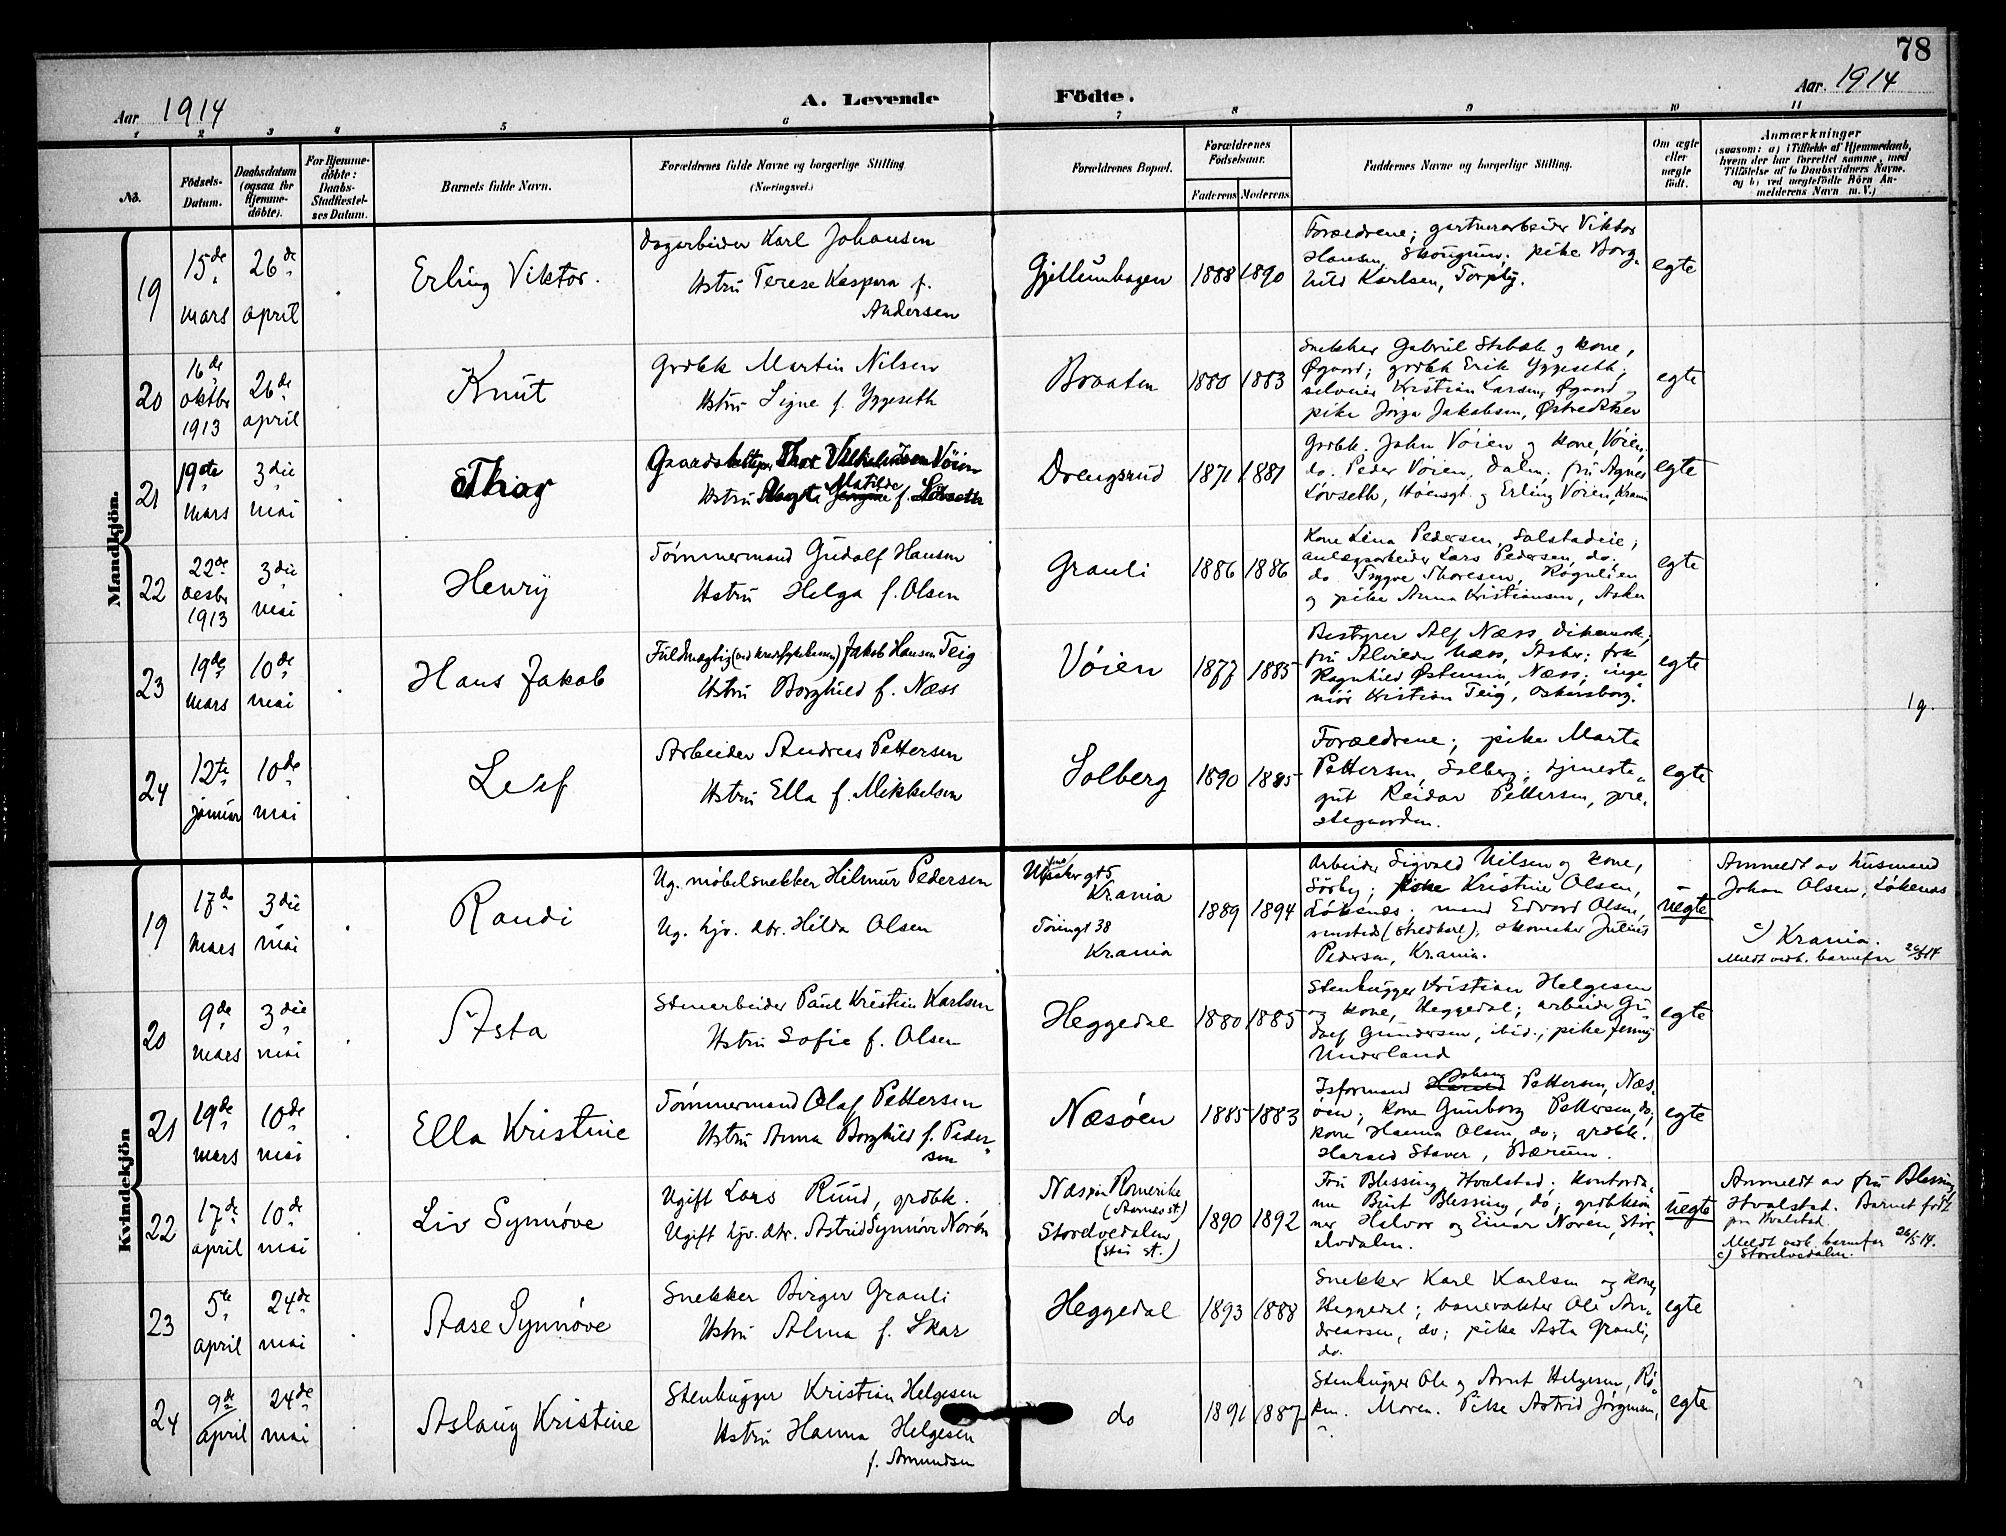 78
Aar 1914
A. Levende
Födte.
Aar. 1914
1
2
3
4
5
6
7
8
9
10
11
No.
Födsels-
Datum.
Daabsdatum
(ogsaa for
Hjemme-
döbte).
For Hjemme-
döbte:
Daabs-
Stadfæstel-
ses Datum.
Barnets fulde Navn.
Forældrenes fulde Navne og borgerlige Stilling
(Næringsvei.)
Forældrenes Bopæl.
Forældrenes
Födselsaar.
Faderens
Moderens
Faddernes Navne og borgerlige Stilling.
Om ægte
eller
uægte
födt.
Anmærkninger
(saasom: a) i Tilfælde af Hjemmedaab,
hvem der har forrettet samme, med
Tilföielse af to Daabsvidners Navne,
og b) ved uægtefödte Börn An-
melderens Navn m. V.)
Mandkjön.
19
15de
mars
26de
april
Erling Viktor.
Dagarbeider Karl Johansen
Hstru Terese Kaspara f.
Andersen
Gjellumhagen
1888
1890
Forældrene; gartnerarbeider Viktor
Hansen, Skougum; pike Borg-
hild Karlsen, Torply.
egte
20
16de
oktbr
1913
26de
april
Knut
Grdbk Martin Nilsen
Hstru Signe f. Yggeseth
Braaten
1880
1883
Snekker Gabriel Stabæk og kone,
Øgaard; grdbk Erik Yggeseth;
Kristian Larsen, Øgaard og
pike Jakobsen,
egte
21
19de
mars
3die
mai
Thor
Gaardsbestyrer Thor Vilhelm Vöien
Hstru Matilde f. Lövseth
Drengsrud
1871
1881
Grdbk. John Vöien og kone, Vöien;
do. Peder Vöien, Dalen; fru Agnes
Lövseth, og Erling Vöien,
egte
22
22de
desbr
1913
3die
mai
Henry
Tömmermand Gudolf Hansen
Hstru Helga f. Olsen
Grauli
1886
1886
Kone Lina Pedersen, Solstadeie;
anlægsarbeider Lars Pedersen, do,
do Trygve Thoresen,
og pike Anna Kristiansen, Asker
egte
23
19de
mars
10de
mai
Hans Jakob
Fuldmægtig Jakob Hansen Teig
Hstru Borghild f. Næss
Vöien
1877
1885
Bestyrer Alf Næss, Dikemark;
fru Alvilde Næss, Asker; frk
Ragnhild Østensen, Næss; inge-
niör Kristian Teig, Oskarsborg.
egte
1 g.
24
12te
januar
10de
mai
Leif
Arbeider Andreas Pettersen
Hstru Ella f. Mikkelsen
Solberg
1890
1885
Forældrene; pike Marta
Pettersen, Solberg; tjeneste-
gut Reidar Pettersen, pre-
stegaarden.
egte
Kvindekjön
19
17de
mars
3die
mai
Randi
Ug. möbelsnekker Hilmar Pedersen
Ug. hjv. dtr. Hilda Olsen
Krania
38
Krania
1889
1894
Arbeider Sigvald Nilsen og kone,
Sörby; pike Kristine Olsen,
Lökenæs; Edvard Olsen,
skomaker Julius
Pedersen, Krania.
uegte
Anmeldt av husmand
Johan Olsen, Lökenæs
c) Krania.
Meldt vedk. barnefar 26/5 14
20
9de
mars
3die
mai
Asta
Stenarbeider Paul Kristian Karlsen
Hstru Sofie f. Olsen
Heggedal
1880
1885
Stenhugger Kristian Helgesen
og kone, Heggedal; arbeider Gu-
dolf Gundersen, ibid.; pike Jenny
Underland
egte
21
19de
mars
10de
mai
Ella Kristine
Tömmermand Olaf Pettersen
Hstru Anna Borghild f. Peder-
sen
Næsöen
1885
1883
Isformand Johan Pettersen, Næs-
öen; kone Gunborg Pettersen, do;
kone Hanna Olsen, do; grdbk.
Harald Staver, Bærum.
egte
22
17de
april
10de
mai
Liv Synnöve
Ugift Lars Ruud, grdbk.
Ugift hjv. dtr. Astrid Synnöve Norén
Næs paa Romerike
(Aarnes st.)
Stordvedalen
(Stai st.)
1890
1892
Fru Blessing, Hvalstad; kontorda-
me Blessing, do;
Halvor og Einar Norén, Stor-
elvdalen.
uegte
Anmeldt av fru Blessing,
Hvalstad. Barnet födt
paa Hvalstad.
Meldt vedk. barnefar 26/5 14.
c) Stordvedalen.
23
5te
april
24de
mai
Aase Synnöve
Snekker Birger Grauli
Hstru Alma f. Skar
Heggedal
1893
1888
Snekker Karl Karlsen og kone,
Heggedal; banevokter Ole An-
dreassen, do; pike Asta Grauli,
do.
egte
24
9de
april
24de
mai
Aslaug Kristine
Stenhugger Kristian Helgesen
Hstru Hanna Helgesen
f. Amundsen
do
1891
1887
Stenhugger Ole og Arnt Helgesen, Rö-
ken. Moren. Pike Astrid Jörgensen,
egte